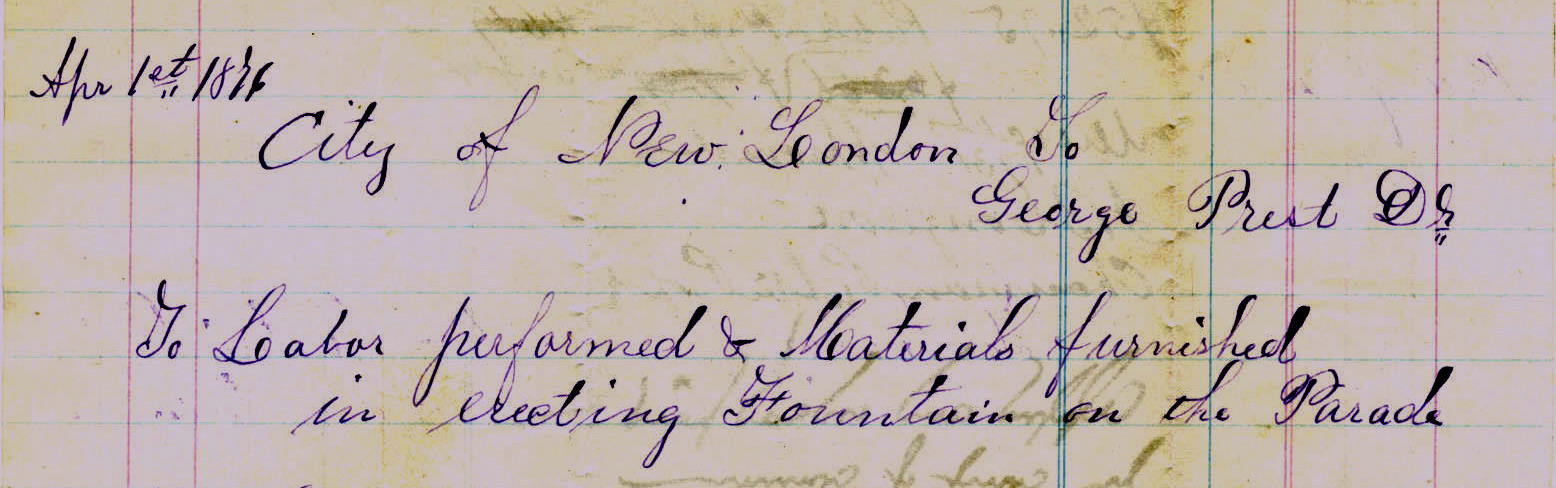 Apr 1st 1876
City of New London To
George Prest Dr
To Labor performed & Materials furnished
in erecting Fountain on the Parade